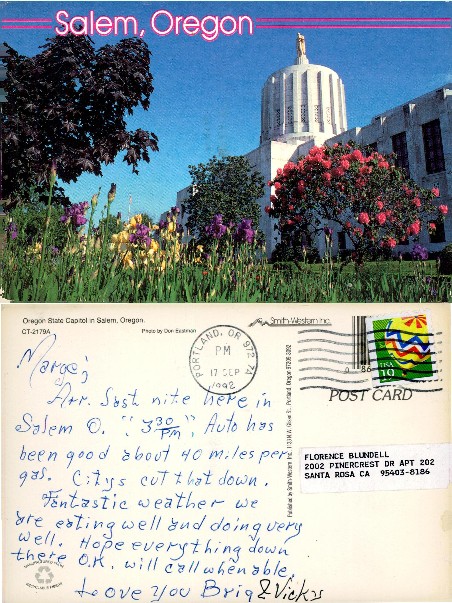 Salem, Oregon
Oregon State Capitol in Salem, Oregon.
CT-2179A
Photo by Don Eastman
Smith-Western Inc.
PORTLAND, OR 972 74
PM
17 SEP
1992
USA
19
POST CARD
Marge;
Arr. Last nite here in
Salem O. "3:30 PM", Auto has
been good about 40 miles per
gas. Citys cut that down.
Fantastic weather we
are eating well and doing very
well. Hope everything down
there O.K. will call when able,
Love You Brig & Vicky
Published by Smith-Western Inc.
Portland, Oregon 97209-3092
FLORENCE BLUNDELL
2002 PINERCREST DR APT 202
SANTA ROSA CA 95403-8186